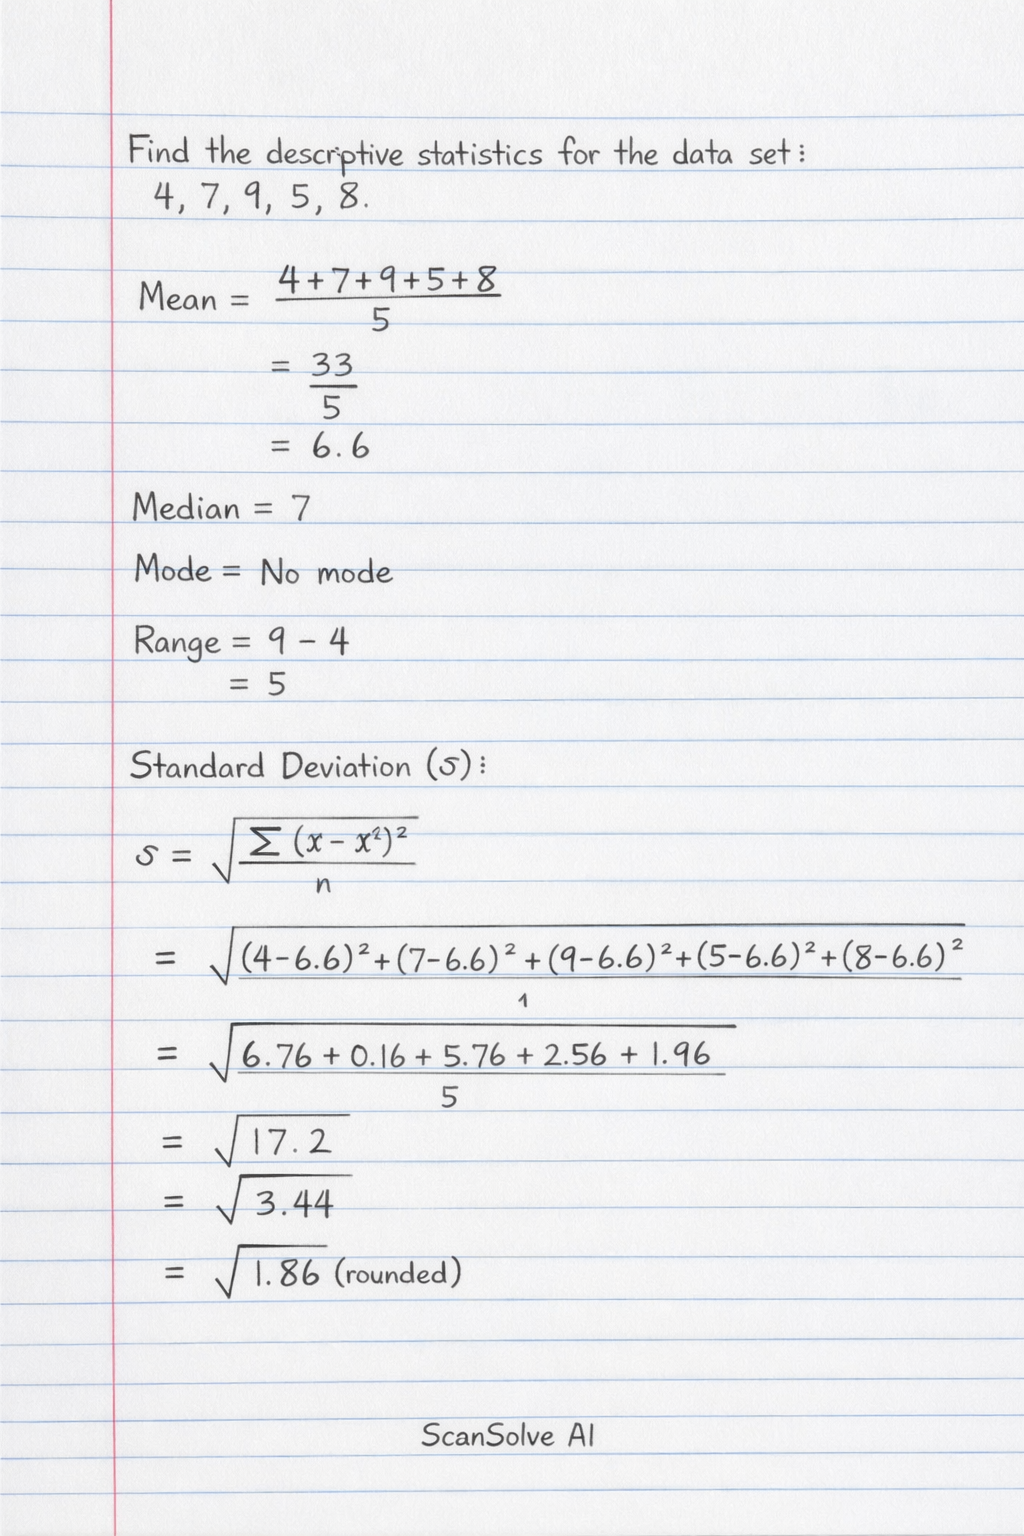 Find the descriptive statistics for the data set:
4, 7, 9, 5, 8.
Mean = 4+7+9+5+8
5
= 33
5
= 6.6
Median = 7
Mode = No mode
Range = 9 - 4
= 5
Standard Deviation (s):
s = √ Σ (x - x²)²
n
= √ (4-6.6)²+(7-6.6)²+(9-6.6)²+(5-6.6)²+(8-6.6)²
1
= √ 6.76 + 0.16 + 5.76 + 2.56 + 1.96
5
= √ 17.2
= √ 3.44
= √ 1.86 (rounded)
ScanSolve AI